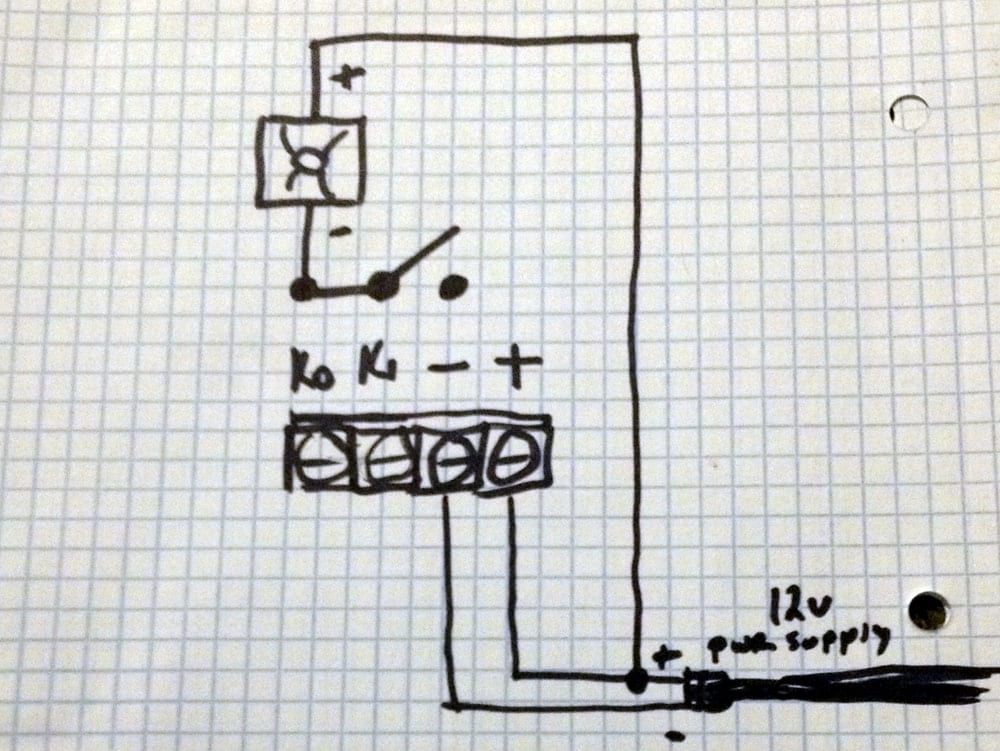 +
-
K0 K1 - +
12v
+ pwr supply
-